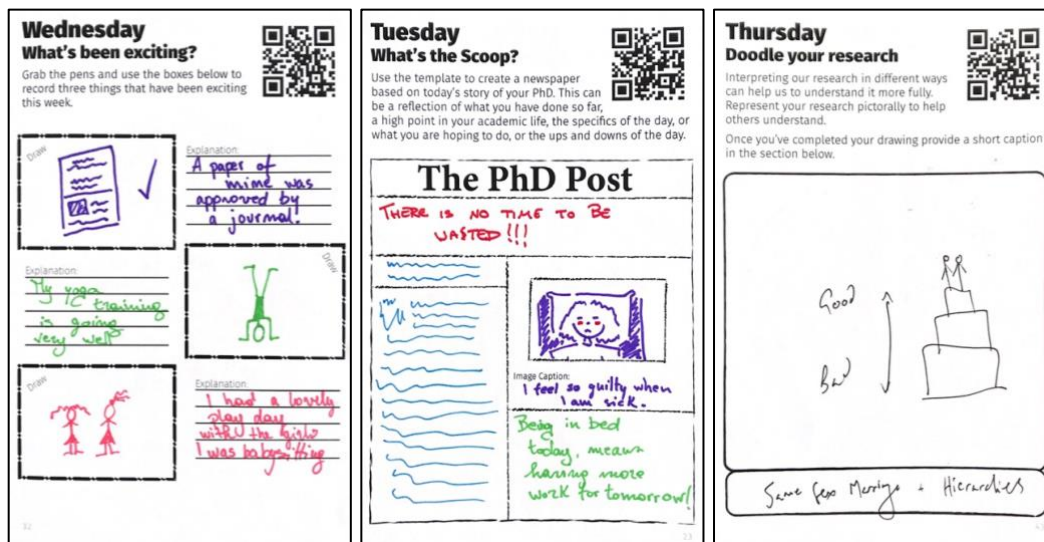 Wednesday
What's been exciting?
Grab the pens and use the boxes below to
record three things that have been exciting
this week.
Draw
Explanation:
A paper of
mine was
approved by
a journal.
Explanation:
My yoga
training
is going
very well
Draw
Draw
Explanation:
I had a lovely
play day
with the girls
I was babysitting
32
Tuesday
What's the Scoop?
Use the template to create a newspaper
based on today's story of your PhD. This can
be a reflection of what you have done so far,
a high point in your academic life, the specifics of the day, or
what you are hoping to do, or the ups and downs of the day.
The PhD Post
THERE IS NO TIME TO BE
WASTED!!!
Image Caption:
I feel so guilty when
I am sick.
Being in bed
today, means
having more
work for tomorrow!
23
Thursday
Doodle your research
Interpreting our research in different ways
can help us to understand it more fully.
Represent your research pictorally to help
others understand.
Once you've completed your drawing provide a short caption
in the section below.
Good
Bad
Same Sex Marriage + Hierarchies